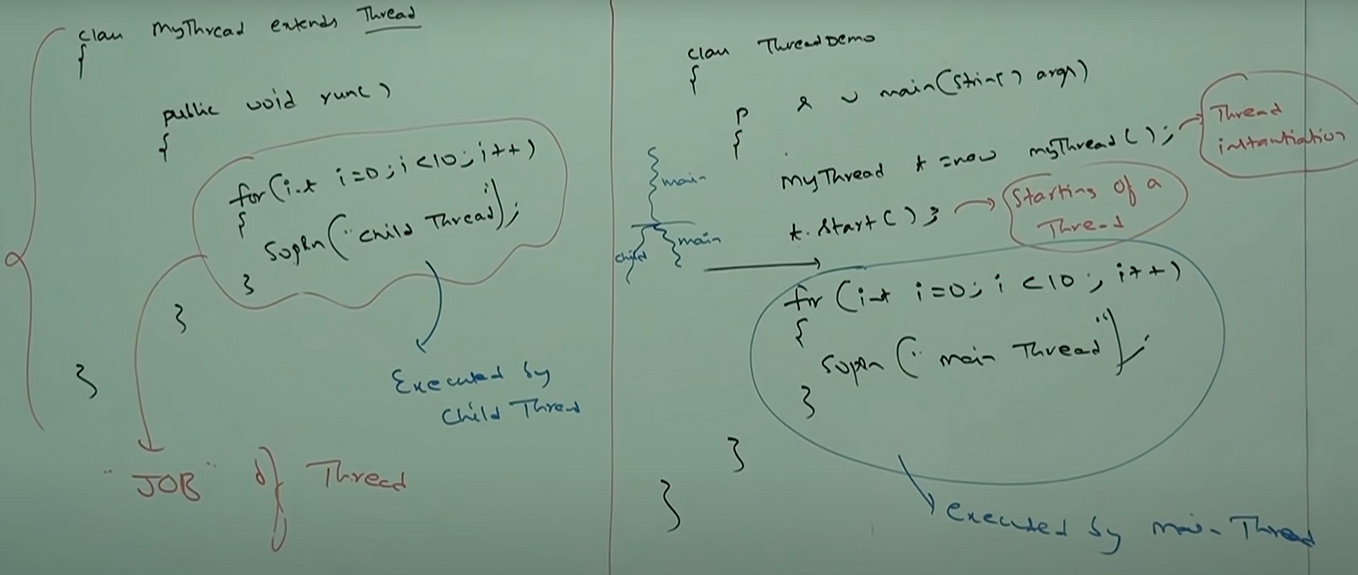 class MyThread extends Thread
{
public void run()
{
for(int i=0; i<10; i++)
{
Sopln("Child Thread");
}
}
}
Executed by
Child Thread
"JOB" of Thread
class ThreadDemo
{
p s v main(String[] args)
{
MyThread t = new myThread();
Thread
instantiation
t.start();
Starting of a
Thread
main
child
main
for (int i=0; i<10; i++)
{
Sopln("main Thread");
}
}
}
executed by main Thread